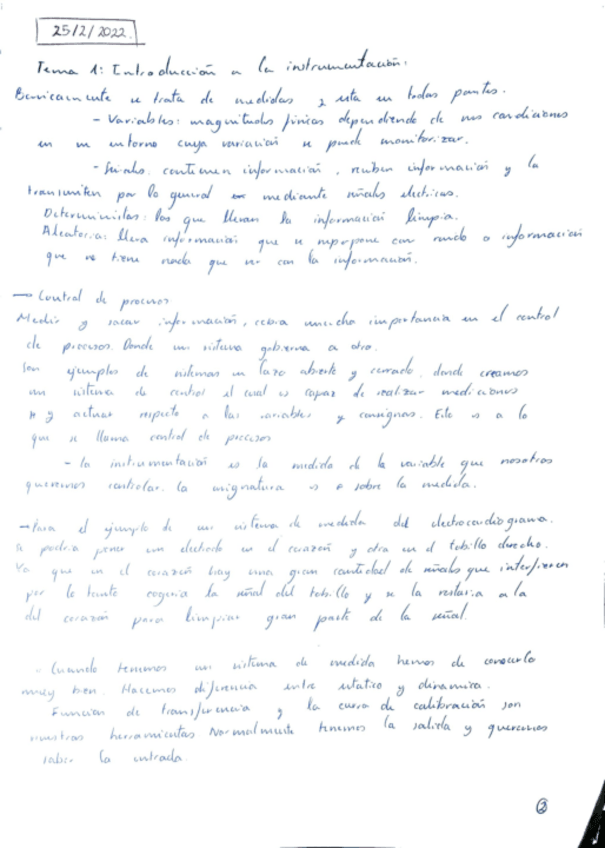 25/2/2022
Tema 1: Introducción a la instrumentación:
Basicamente se trata de medidas y esta en todas partes.
- Variables: magnitudes físicas dependiendo de las condiciones
en un entorno cuya variación se puede monitorizar.
- Señales: contienen información, reciben información y la
transmiten por lo general mediante señales electricas.
Deterministas: las que llevan la información limpia.
Aleatoria: lleva información que se superpone con ruido o información
que no tiene nada que ver con la información.
→ Control de procesos
Medir y sacar información, cobra mucha importancia en el control
de procesos. Donde un sistema gobierna a otro.
Son ejemplos de sistemas en lazo abierto y cerrado, donde creamos
un sistema de control el cual es capaz de realizar mediciones
y actuar respecto a las variables y consignas. Esto es a lo
que se llama control de procesos
- la instrumentación es la medida de la variable que nosotros
queremos controlar. la asignatura es sobre la medida.
→ Para el ejemplo de un sistema de medida del electrocardiograma.
se podria poner un electrodo en el corazón y otro en el tobillo derecho.
Ya que en el corazón hay una gran cantidad de señales que interfieren
por lo tanto cogeria la señal del tobillo y se la restaria a la
del corazón para limpiar gran parte de la señal.
- Cuando tenemos un sistema de medida hemos de conocerlo
muy bien. Hacemos diferencia entre estatico y dinamica.
Funcion de transferencia y la curva de calibración son
nuestras herramientas. Normalmente tenemos la salida y queremos
saber la entrada.
2